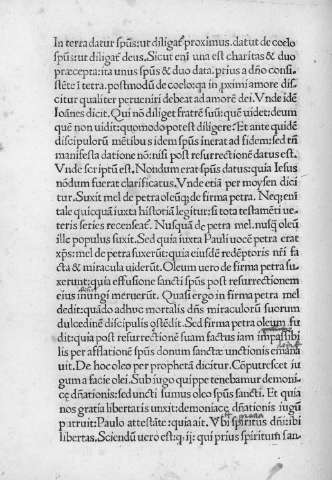 In terra datur spūs: ut diligat᷒ proximus. datut de coelo
spūs: ut diligat᷒ deus. Sicut eni una est charitas & duo
præcepta: ita unus spūs & duo data. prius a dño consi‑
stēte ī terra. postmodū de coelo: qa in pximi amore dis‑
citur qualiter perueniri debeat ad amorē dei. Vnde idē
Ioānes dicit. Qui nō diligit fratrē suū: quē uidet: deum
quē non uidit: quomodo potest diligere. Et ante quidē
discipulorū mētibus idem spūs inerat ad fidem: sed tñ
manifesta datione nō: nisi post resurrectionē datus est.
Vnde scriptū est. Nondum erat spūs datus: quia Iesus
nōdum fuerat clarificatus. Vnde etiā per moysen dici
tur. Suxit mel de petra oleūq; de firma petra. Neq; eni
tale quicquā iuxta historiā legitur: si tota testamēti ue‑
teris series recenseat᷒. Nusquā de petra mel. nusq̄ oleū
ille populus suxit. Sed quia iuxta Pauli uocē petra erat
xp̄s: mel de petra suxerūt: quia eiusdē redēptoris nr̄i fa
cta & miracula uiderūt. Oleum uero de firma petra su‑
xerunt: quia effusione sancti spūs post resurrectionem
eius inungi meruerūt. Quasi ergo in firma petra mel
dedit: quādo adhuc mortalis dñs miraculorū suorum
dulcedinē discipulis ostēdit. Sed firma petra oleum fu
dit: quia post resurrectionē suam factus iam impassibi
lis per afflationē spūs donum sanctæ unctionis emana
uit. De hoc oleo per prophetā dicitur. Cōputrescet iu
gum a facie olei. Sub iugo quippe tenebamur demoni‑
cę dñationis: sed uncti sumus oleo spūs sancti. Et quia
nos gratia libertatis unxit: demoniacę dñationis iugū
putruit: Paulo attestāte: qui ait. Vbi spiritus dñi: ibi
libertas. Sciendū uero est: q; ij: qui prius spiritum san‑